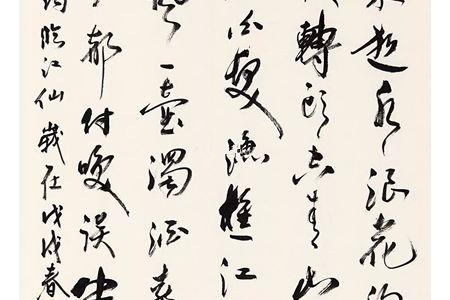 逝水浪花
轉頭空青山
白髮漁樵江
風一壺濁酒喜
都付笑談中
臨江仙歲在戊戌春